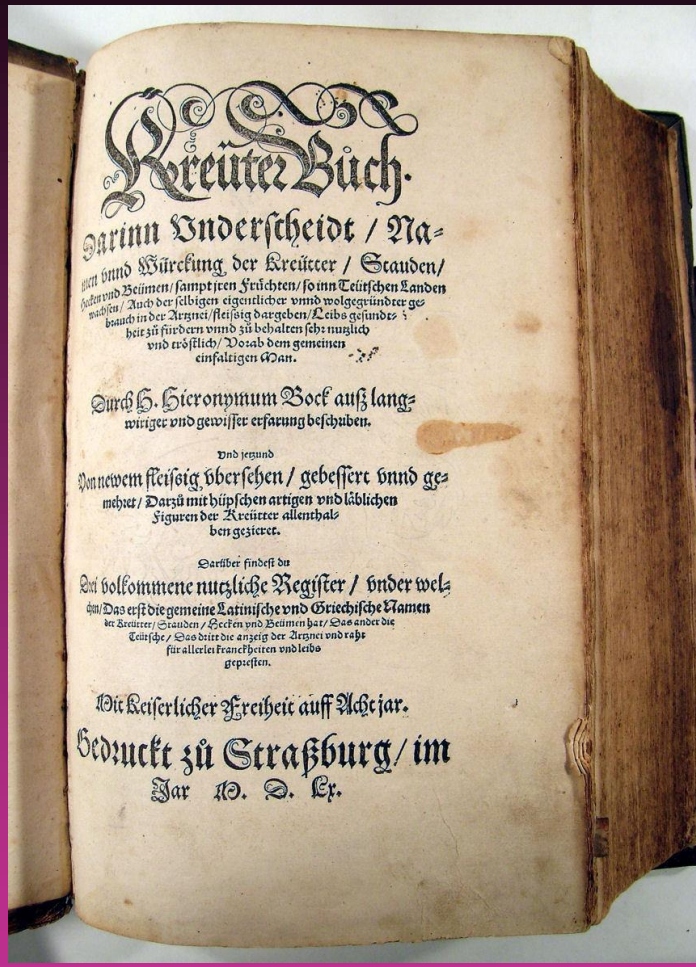 Kreüter Bůch.
Darinn Vnderscheidt / Na-
men vnnd Würckung der Kreütter / Stauden /
Hecken vnd Beümen / sampt jren Früchten / so inn Teütschen Landen
wachsen / Auch der selbigen eigentlicher vnnd wolgegründter ge-
brauch in der Artznei / fleissig dargeben / Leibs gesundt-
heit zů fürdern vnnd zů behalten sehr nutzlich
vnd tröstlich / Vorab dem gemeinen
einfaltigen Man.
Durch H. Hieronymum Bock auß lang-
wiriger vnd gewisser erfarung beschriben.
Vnd jetzund
Von newem fleissig übersehen / gebessert vnnd ge-
mehret / Darzů mit hüpschen artigen vnd läblichen
Figuren der Kreütter allenthal-
ben gezieret.
Darüber findest du
Drei volkommene nutzliche Register / vnder wel-
chen / Das erst die gemeine Latinische vnd Griechische Namen
der Kreütter / Stauden / Hecken vnd Beümen hat / Das ander die
Teütsche / Das dritt die anzeig der Artznei vnd raht
für allerlei kranckheiten vnd leibs
gepresten.
Mit Keiserlicher Freiheit auff Acht jar.
Gedruckt zů Straßburg / im
Jar M. D. Lx.